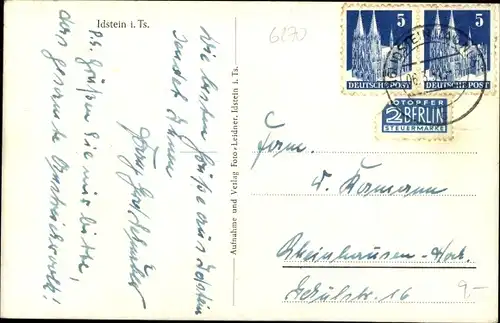 Idstein i. Ts.
6270
Die besten Grüße aus Idstein
sendet Ihnen
P.S. Grüßen Sie mir bitte
das gesamte
Aufnahme und Verlag Foto-Leidner, Idstein i. Ts.
5 5
DEUTSCHE POST DEUTSCHE POST
IDSTEIN
NOTOPFER
2 BERLIN
STEUERMARKE
Rheinhausen-Hoch.
Schulstr. 16
9.-